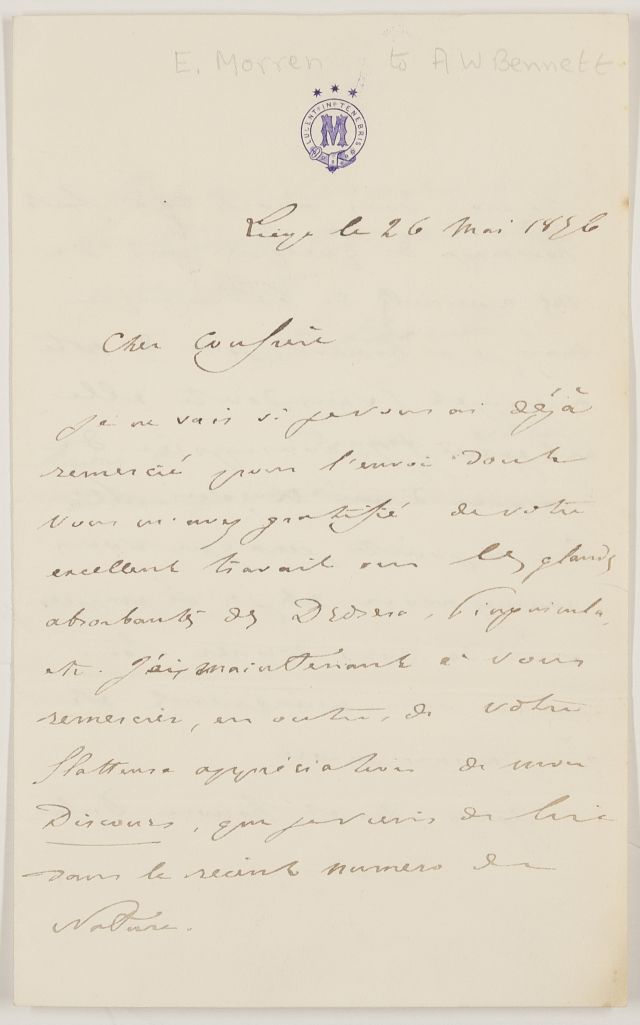 E. Morren to A W Bennett
LUCENT IN TENEBRIS
M
Liége le 26 Mai 1876
Cher Confrère
Je ne sais si je vous ai déjà
remercié pour l'envoi dont
vous m'avez gratifié de votre
excellent travail sur les glandes
absorbantes des Drosera, Pinguicula,
etc. J'ai maintenant à vous
remercier, en outre, de votre
flatteuse appréciation de mon
Discours, que je viens de lire
dans le récent numero de
Nature.